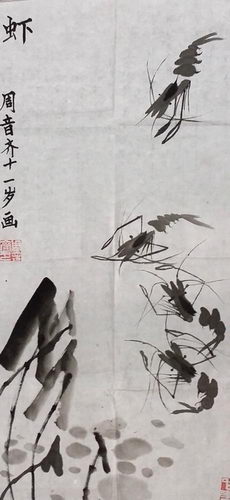 虾
周音齐十一岁画